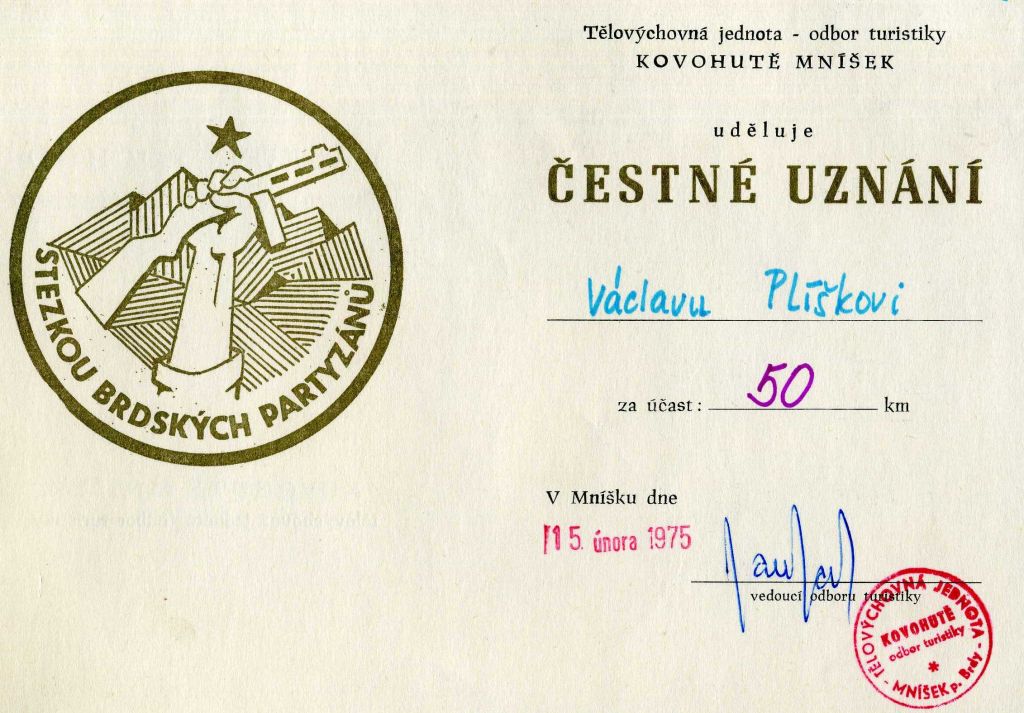 STEZKOU BRDSKÝCH PARTYZÁNŮ
Tělovýchovná jednota - odbor turistiky
KOVOHUTĚ MNÍŠEK
uděluje
ČESTNÉ UZNÁNÍ
Václavu Plíškovi
za účast: 50 km
V Mníšku dne
15. února 1975
vedoucí odboru turistiky
TĚLOVÝCHOVNÁ JEDNOTA
KOVOHUTĚ
odbor turistiky
- MNÍŠEK p. Brdy -